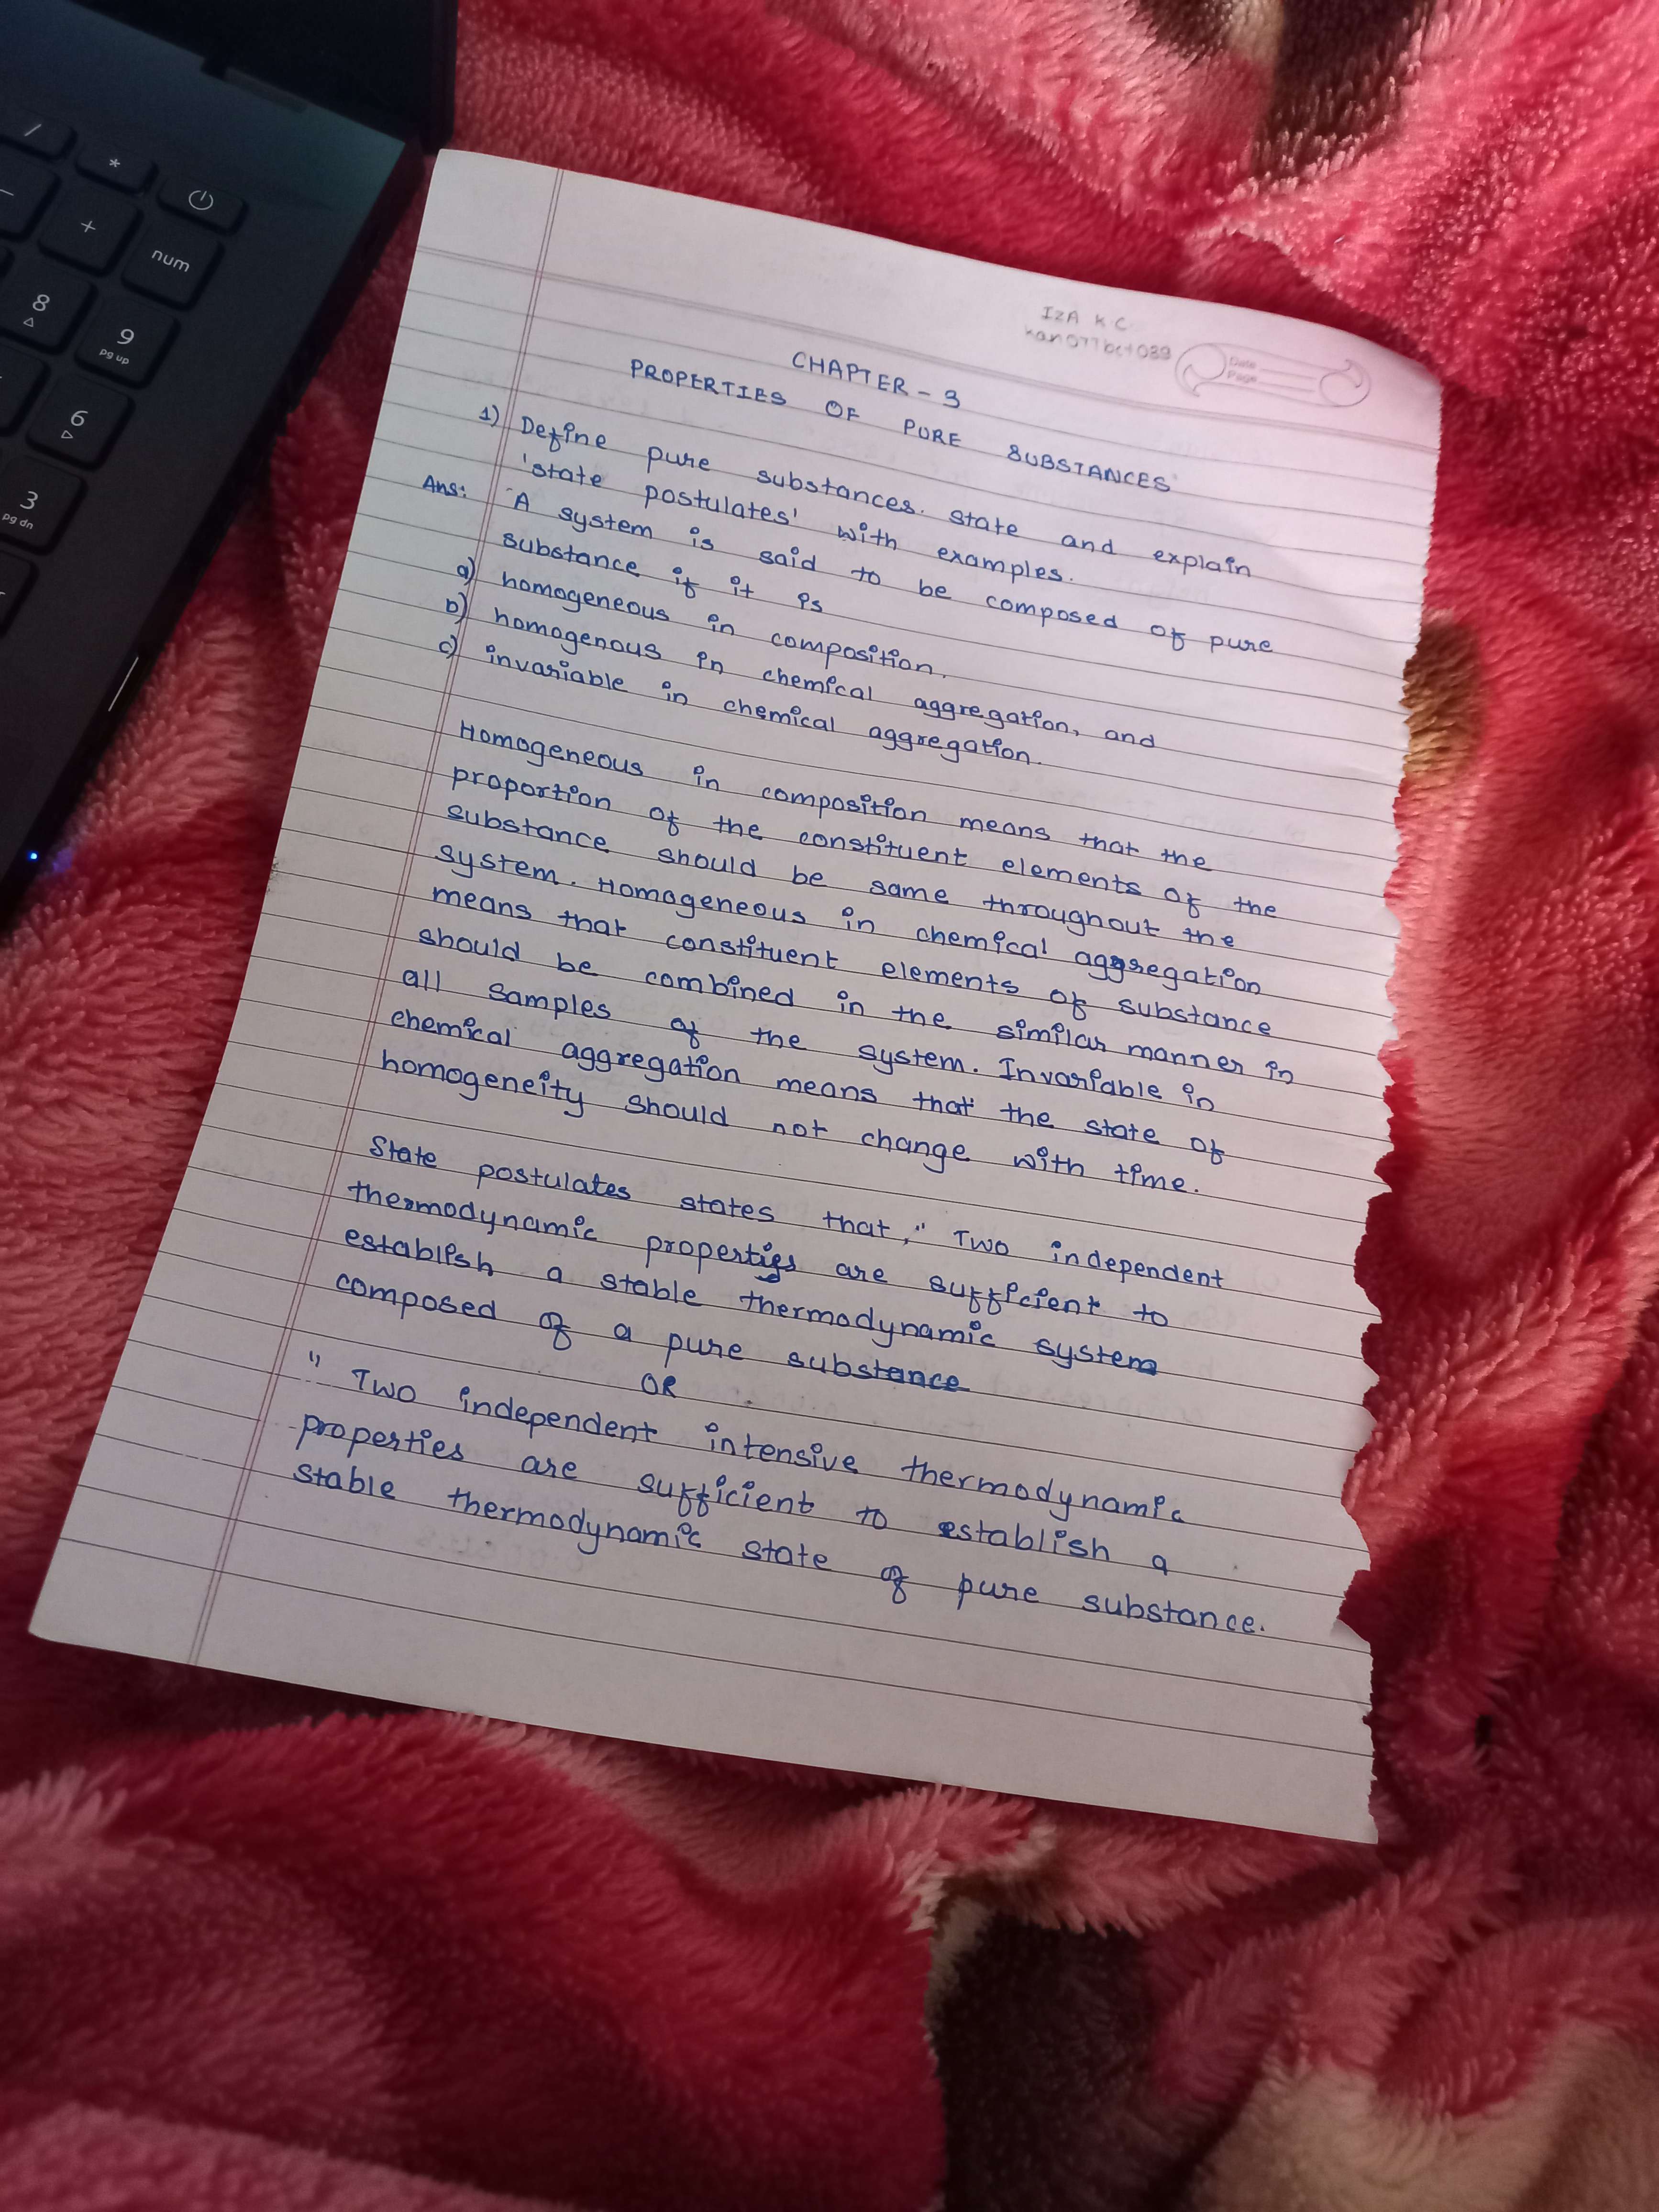 /
*
+
num
8
9
pg up
6
3
pg dn
IZA K.C.
kan077bct039
Date
Page
CHAPTER - 3
PROPERTIES OF PURE SUBSTANCES
1) Define pure substances. state and explain
'state postulates' with examples.
Ans: A system is said to be composed of pure
substance if it is
a) homogeneous in composition.
b) homogenous in chemical aggregation, and
c) invariable in chemical aggregation.
Homogeneous in composition means that the
proportion of the constituent elements of the
substance should be same throughout the
system. Homogeneous in chemical aggregation
means that constituent elements of substance
should be combined in the similar manner in
all samples of the system. Invariable in
chemical aggregation means that the state of
homogeneity should not change with time.
State postulates states that, " Two independent
thermodynamic properties are sufficient to
establish a stable thermodynamic system
composed of a pure substance
OR
" Two independent intensive thermodynamic
properties are sufficient to establish a
stable thermodynamic state of pure substance.